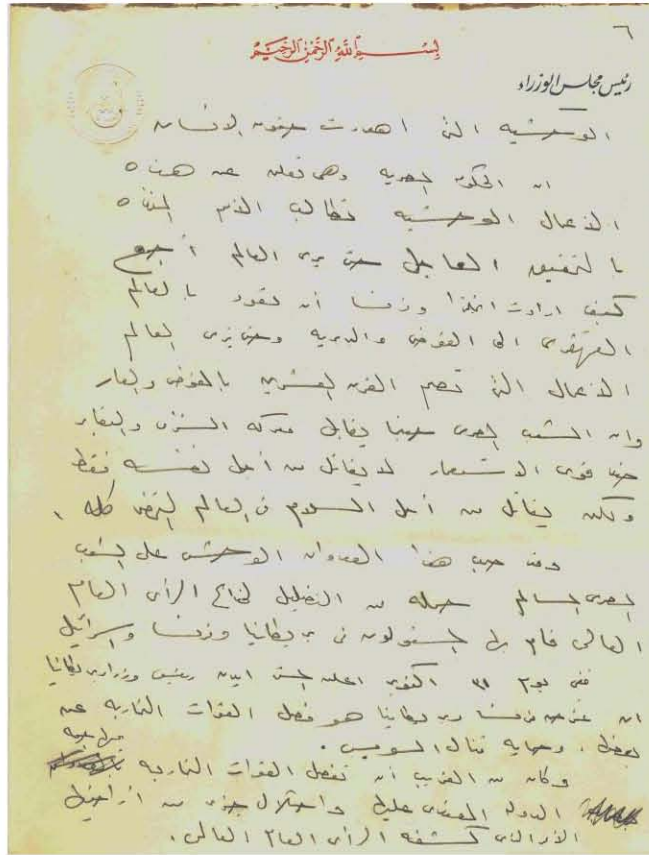 ٦
بسم الله الرحمن الرحيم
رئيس مجلس الوزراء
الوحشيه التى اهدرت حقوق الانسان
ان الحكومه المصريه وهى تعلن عن هذه
الاعمال الوحشيه تطالب الامم المتحده
بالتحقيق العاجل حتى يرى العالم أجمع
كيف ارادت انجلترا وفرنسا أن تعود بالعالم
القهقرى الى الفوضى والبربريه وحتى يرى العالم
الاعمال التى تصم القرن العشرين بالفوضى والعار
وان الشعب المصرى حينما يقاتل معركه الشرف
ضد قوى الاستعمار لا يقاتل من أجل نفسه فقط
ولكن يقاتل من أجل السلام فى العالم كله .
هذا العدوان الوحشى على الشعب
المصرى المسالم حمله من التضليل لخداع الرأى العام
العالمى قام بها المسئولون فى بريطانيا وفرنسا واسرائيل
ففى يوم ٣١ اكتوبر اعلن المستر ايدن رئيس وزراء بريطانيا
ان غرض فرنسا وبريطانيا هو فصل القوات المتحاربه عن
بعضها . وحمايه قنال السويس .
وكان من الغريب أن تفصل القوات المتحاربه
الدوله المعتدى عليها واحتلال جزء من أراضيها
الأمر الذى كشفه الرأى العام العالمى .